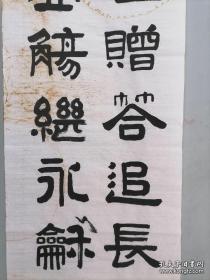 贈答追長
觴繼永龢